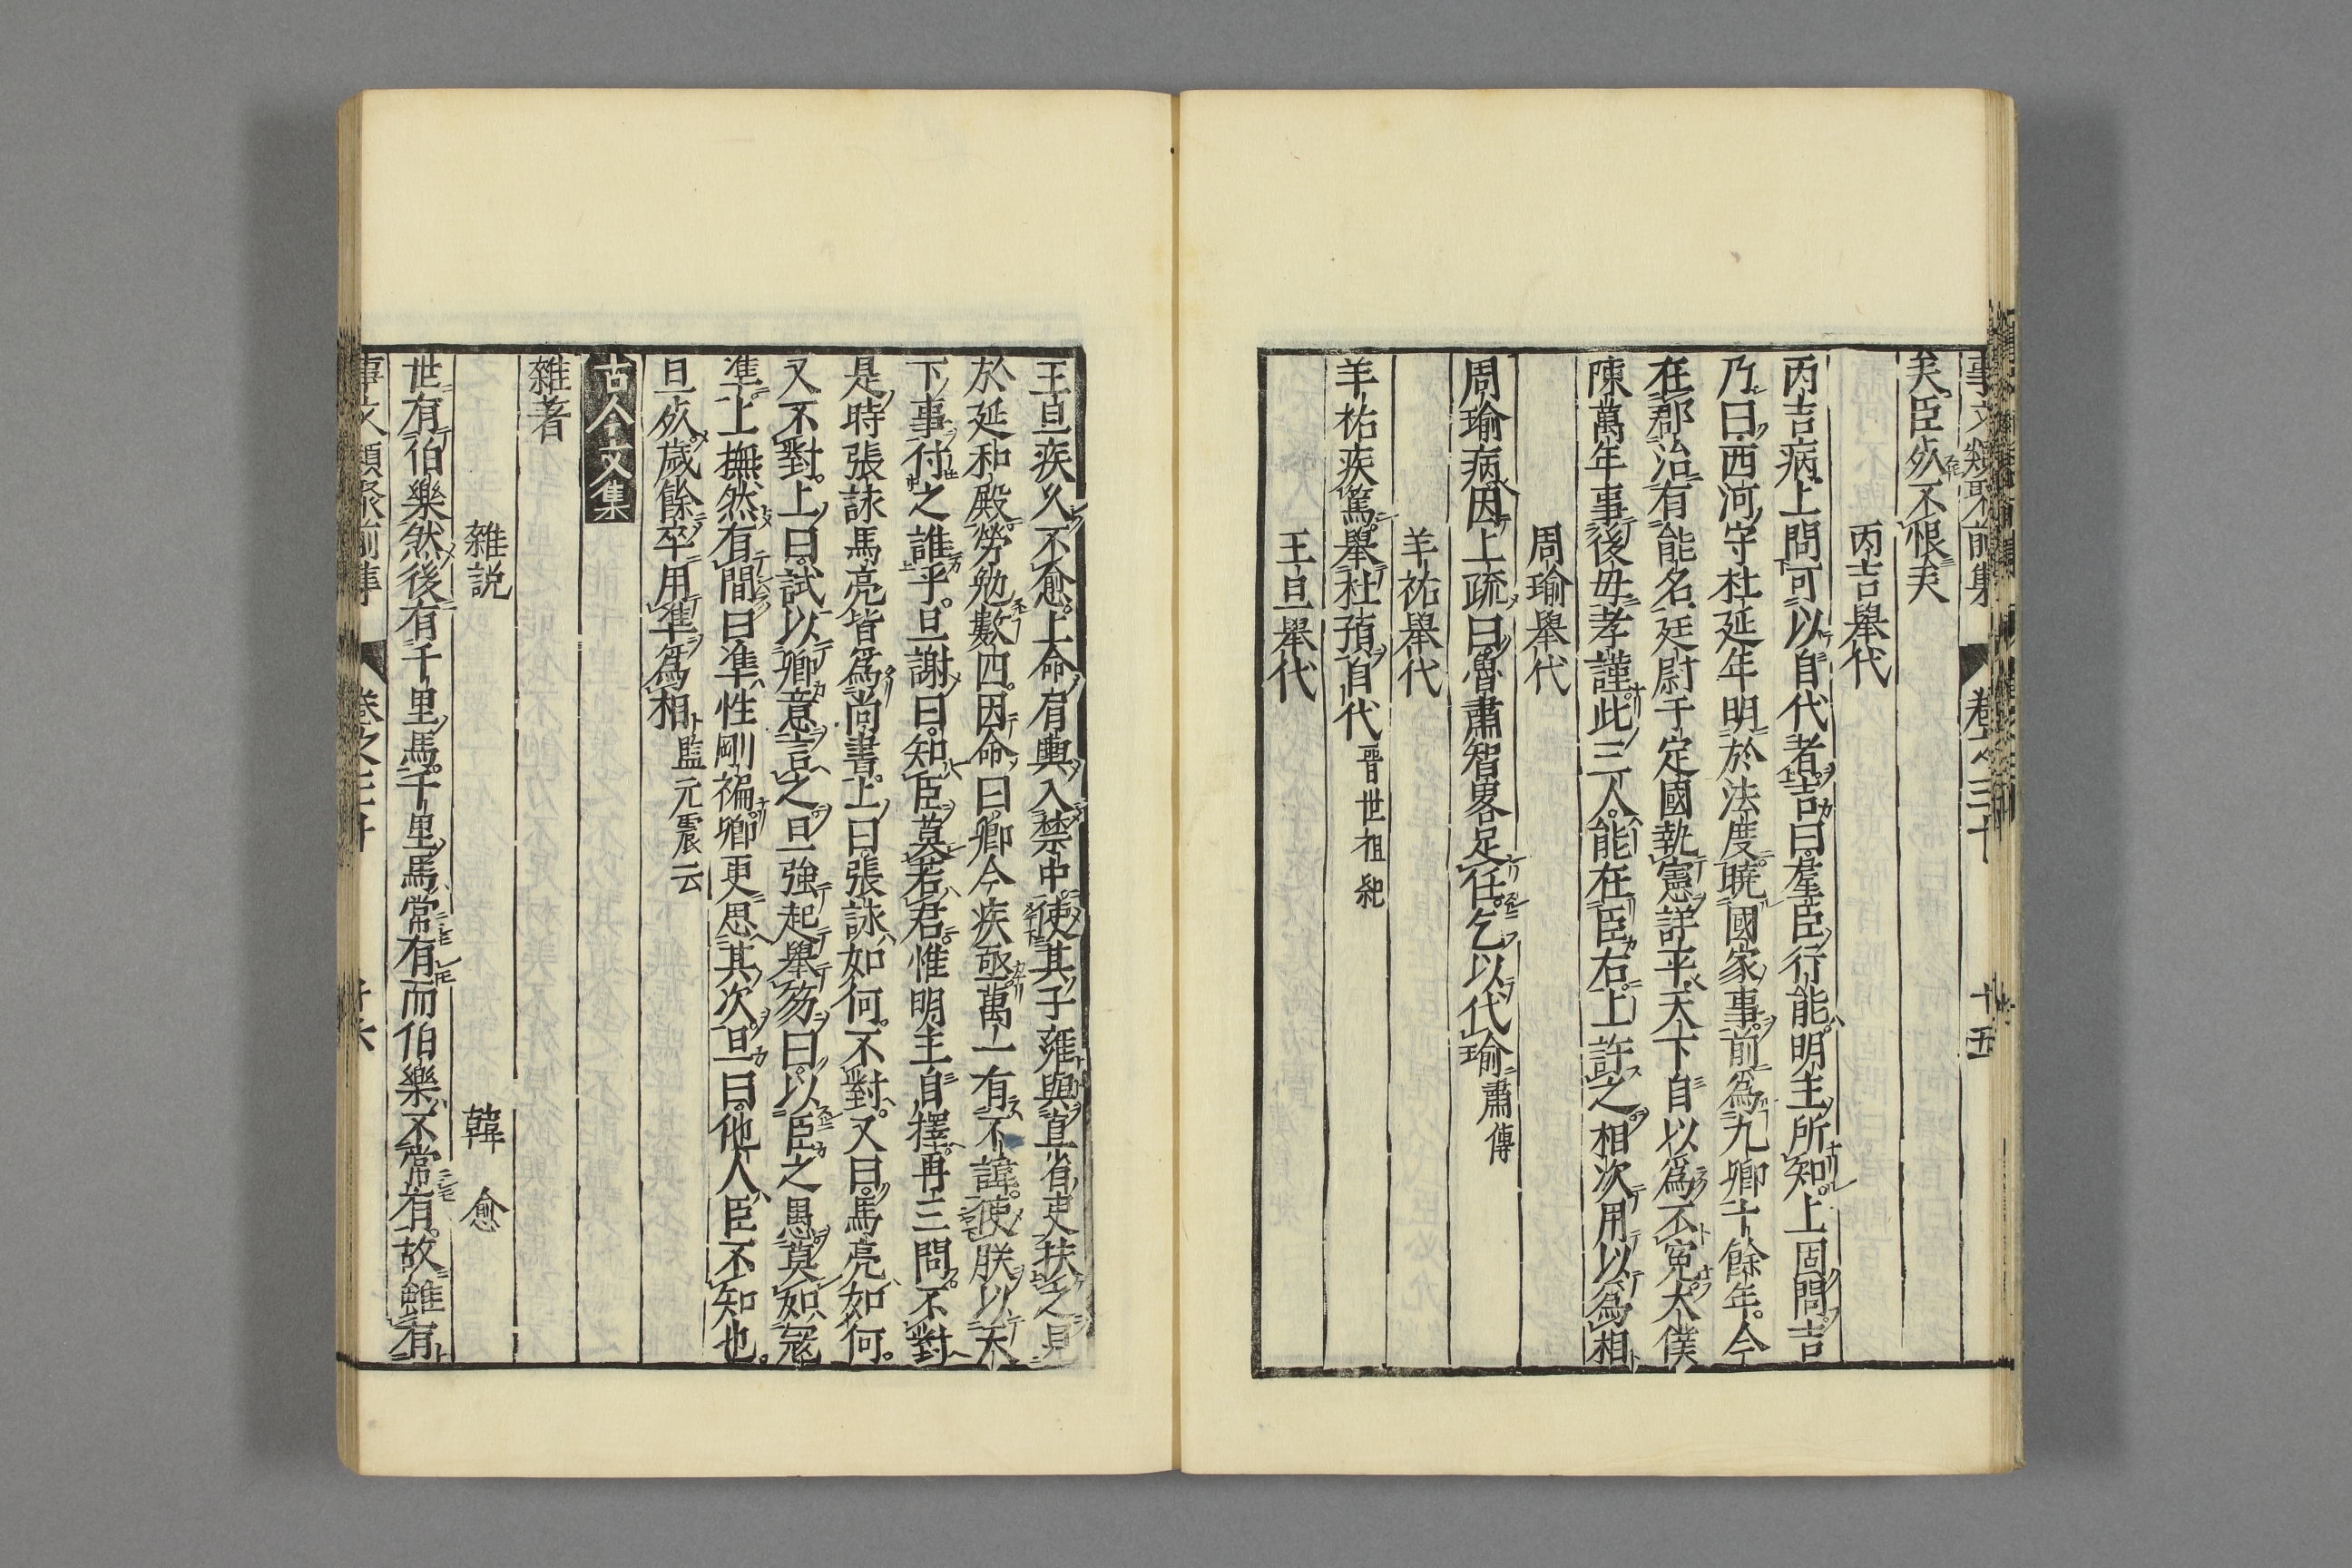 事文類聚前集 卷之三十 十五
矣臣死不恨矣
丙吉舉代
丙吉病上問可以自代者吉曰羣臣行能明主所知上固問吉
乃曰西河守杜延年明於法度曉國家事前爲九卿十餘年今
在郡治有能名廷尉于定國執憲詳平天下自以爲不寃太僕
陳萬年事後母孝謹此三人能在臣右上許之相次用以爲相
周瑜舉代
周瑜病因上疏曰魯肅智畧足任乞以代瑜 肅傳
羊祜舉代
羊祜疾篤舉杜預自代 晉世祖紀
王旦舉代
王旦疾久不愈上命肩輿入禁中使其子雍與直省吏扶之見
於延和殿勞勉數四因命曰卿今疾亟萬一有不諱使朕以天
下事付之誰乎旦謝曰知臣莫若君惟明主自擇再三問不對
是時張詠馬亮皆爲尚書上曰張詠如何不對又曰馬亮如何
又不對上曰試以卿意言之旦強起舉笏曰以臣之愚莫如寇
準上撫然有間曰準性剛褊卿更思其次旦曰他人臣不知也
旦死歲餘卒用準爲相 監元震云
古今文集
雜著
雜説 韓愈
世有伯樂然後有千里馬千里馬常有而伯樂不常有故雖有
事文類聚前集 卷之三十